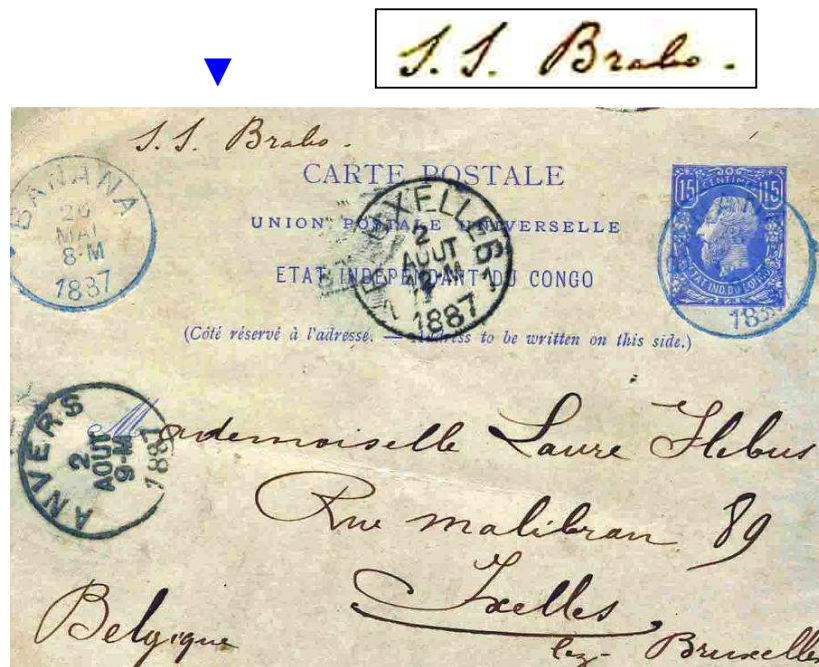 S. S. Brabo.
S. S. Brabo.
CARTE POSTALE
UNION POSTALE UNIVERSELLE
ETAT INDÉPENDANT DU CONGO
(Côté réservé à l'adresse. — Address to be written on this side.)
BANANA
26
MAI
8-M
1887
BRUXELLES 1
2
AOUT
12-M
1887
15 CENTIMES 15
ETAT IND. DU CONGO
ANVERS
2
AOUT
9-M
1887
Mademoiselle Laure Flebus
Rue malibran 89
Ixelles
lez- Bruxelles
Belgique